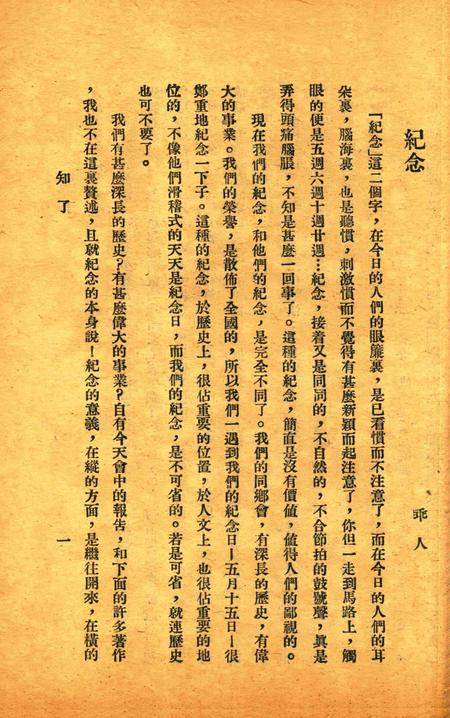 紀念
乖人
「紀念」這二個字，在今日的人們的眼簾裏，是已看慣而不注意了，而在今日的人們的耳
朶裏，腦海裏，也是聽慣，刺激慣而不覺得有甚麼新穎而起注意了，你但一走到馬路上，觸
眼的便是五週六週十週廿週…紀念，接着又是同同的，不自然的，不合節拍的鼓號聲，眞是
弄得頭痛腦脹，不知是甚麼一回事了。這種的紀念，簡直是沒有價値，値得人們的鄙視的。
現在我們的紀念，和他們的紀念，是完全不同了。我們的同鄉會，有深長的歷史，有偉
大的事業。我們的榮譽，是散佈了全國的，所以我們一遇到我們的紀念日—五月十五日—很
鄭重地紀念一下子。這種的紀念，於歷史上，很佔重要的位置，於人文上，也很佔重要的地
位的，不像他們滑稽式的天天是紀念日，而我們的紀念，是不可省的。若是可省，就連歷史
也可不要了。
我們有甚麼深長的歷史？有甚麼偉大的事業？自有今天會中的報告，和下面的許多著作
，我也不在這裏贅述，且就紀念的本身說—紀念的意義，在縱的方面，是繼往開來，在橫的
知了
一